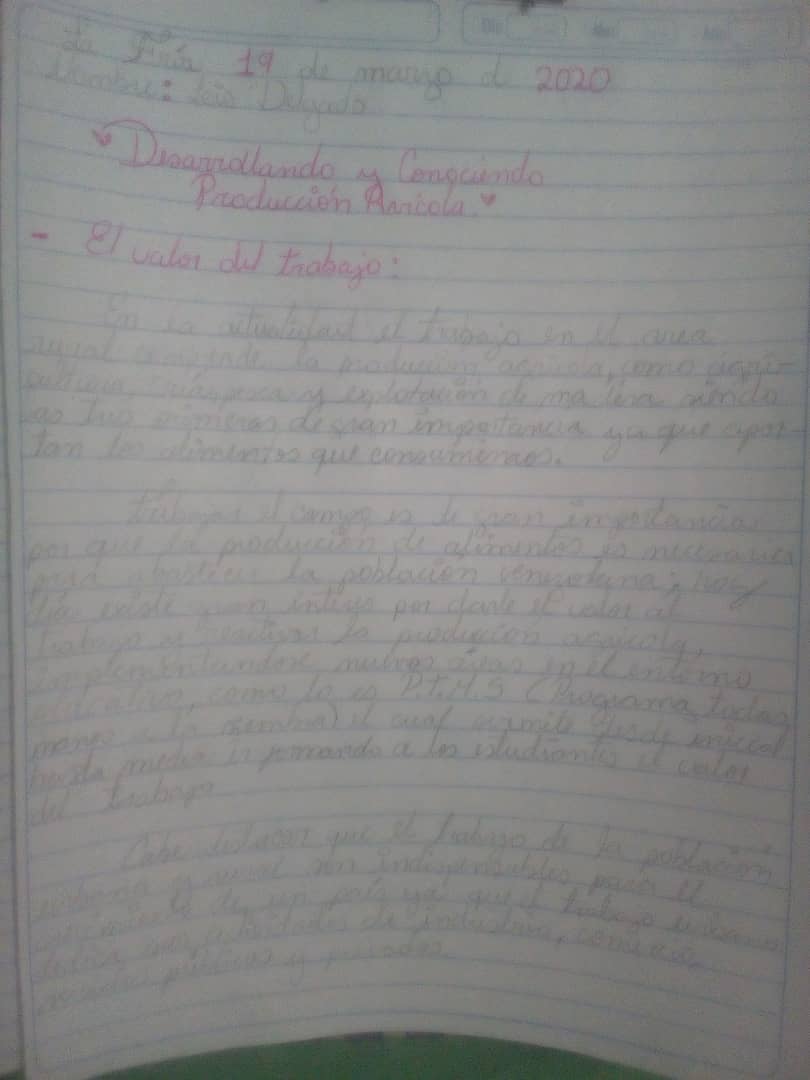 La Fria, 19 de marzo d 2020
Nombre: Leis Delgado
Desarrollando y Conociendo
Producción Aaricola.
- El valor del trabajo:
En la actualidad el trabajo en el area
rural comprende la producción agricola, como agri
cultura, y explotación de madera siendo
as dos primeras de gran importancia ya que apor-
tan los alimentos que consumimos.
trabajar el campo es de gran importancia
por que la producción de alimentos es necesaria
para abastecer la población venezolana; hoy
día existe gran interes por darle el valor al
trabajo y reactivar la produccion agricola,
implementandose nuevas áreas en el entorno
educativo, como lo es P.T.M.S (Programa todas
manos a la siembra) el cual permite desde inicial
hasta media ir formando a los estudiantes el valor
del trabajo
Cabe destacar que el trabajo de la población
urbana y rural son indispensables para el
crecimiento de un país ya que el trabajo urbano
dedica sus actividades de industria, comercio
publicos y privados